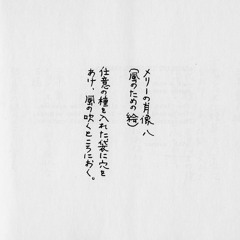 メリーの肖像八
（風のための絵）
任意の種を入れた袋に穴を
あけ、風の吹くところにおく。